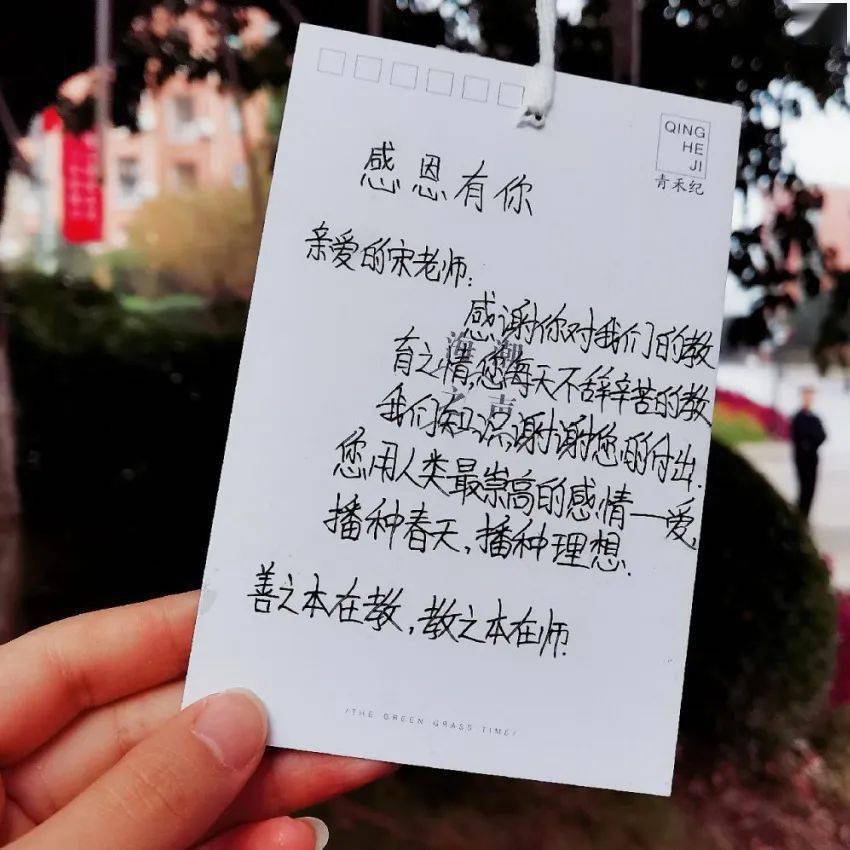 QING
HE
JI
青禾纪
感恩有你
亲爱的宋老师:
感谢你对我们的教
育之情,您每天不辞辛苦的教
我们知识,谢谢您的付出.
您用人类最崇高的感情——爱,
播种春天,播种理想.
善之本在教,教之本在师.
/THE GREEN GRASS TIME/